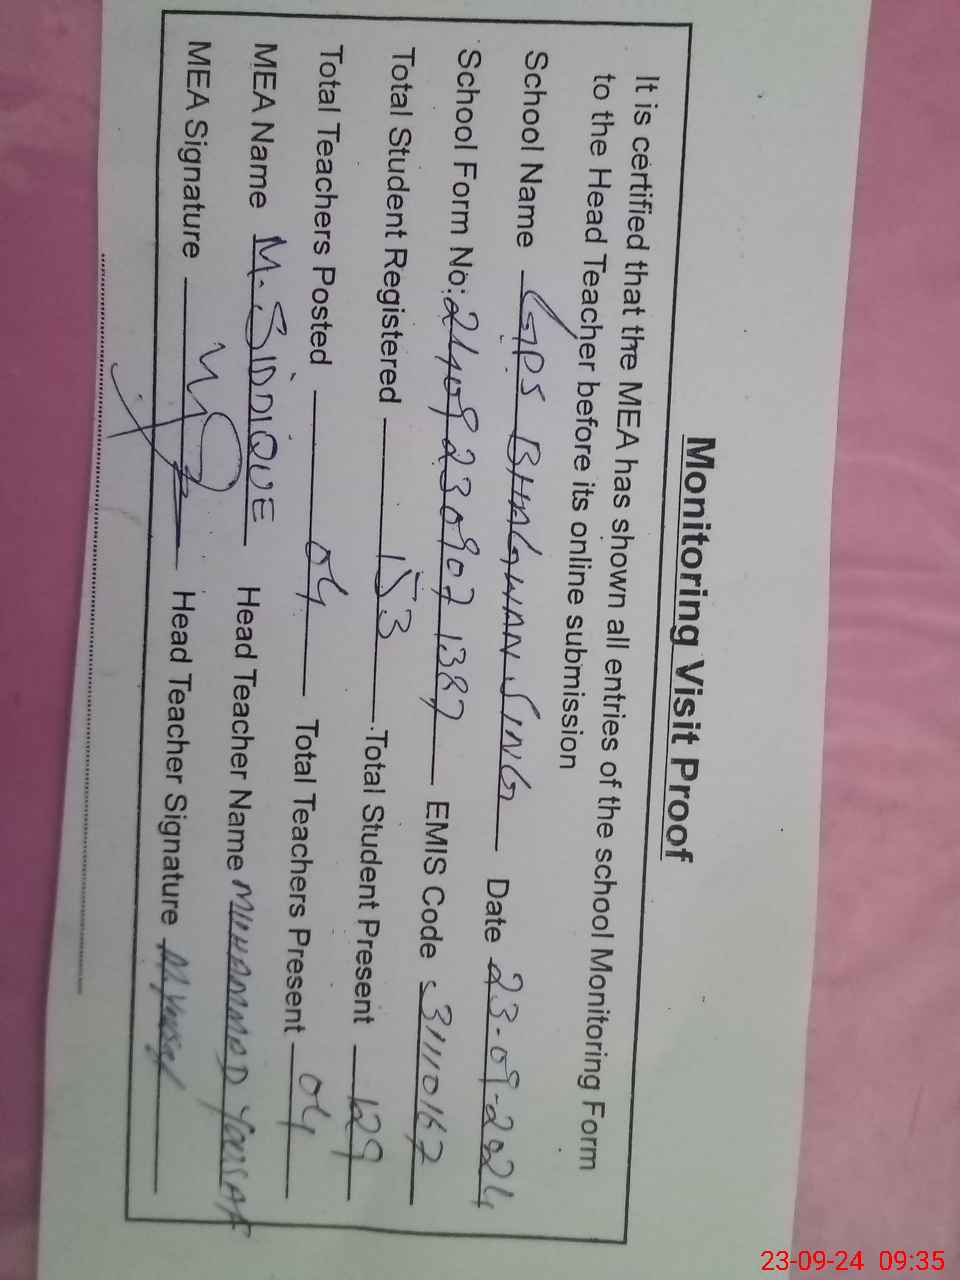 Monitoring Visit Proof
It is certified that the MEA has shown all entries of the school Monitoring Form
to the Head Teacher before its online submission
School Name GPS BHAGWAN SING Date 23-09-2024
School Form No: 24092309071387 EMIS Code 31110167
Total Student Registered 153 Total Student Present 129
Total Teachers Posted 04 Total Teachers Present 04
MEA Name M. SIDDIQUE Head Teacher Name MUHAMMAD YOUSAF
MEA Signature Head Teacher Signature M Yousaf
23-09-24 09:35